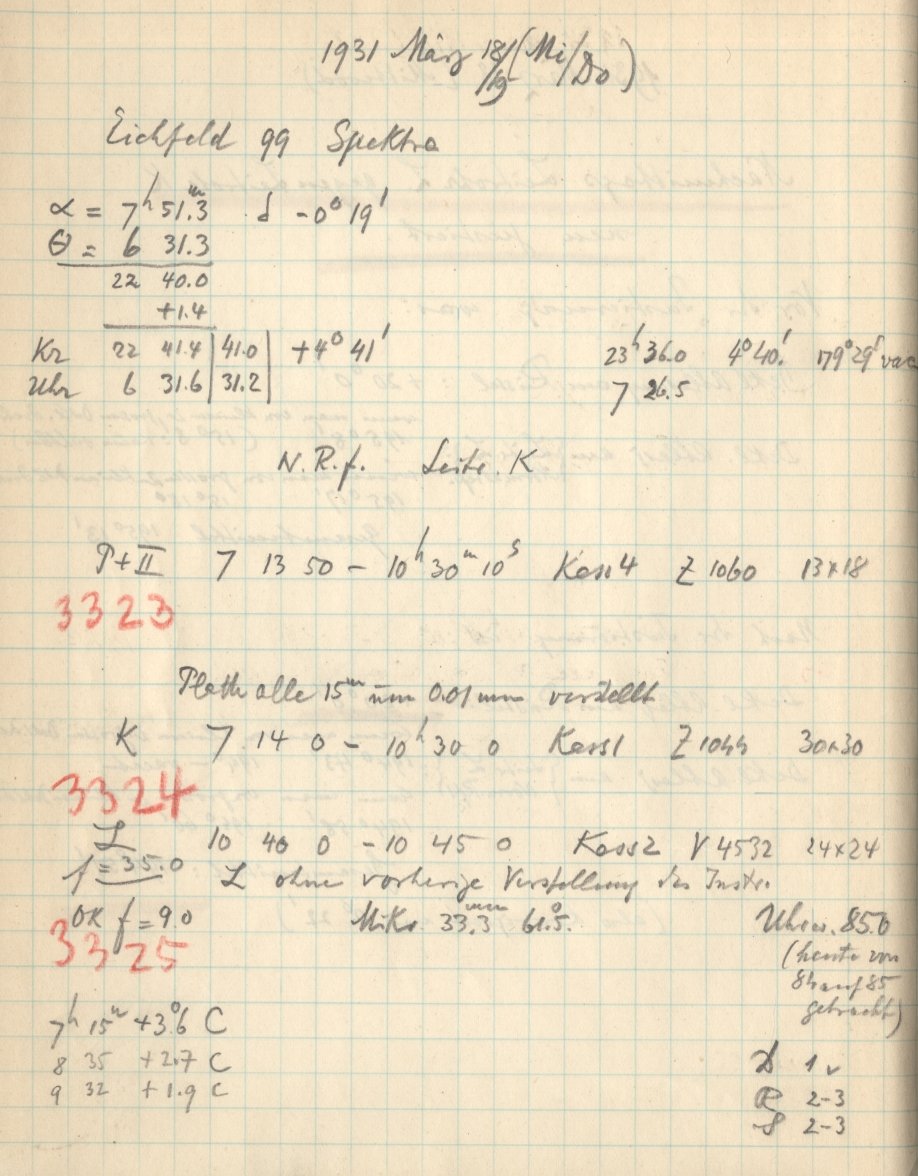 1931 März 18/19 (Mi/Do)
Eichfeld 99 Spektra
α = 7h 51.3m δ -0° 19'
θ = 6 31.3
22 40.0
+1.4
Kr 22 41.4 | 41.0 | +4° 41' 23h 36.0 4° 40!
Uhr 6 31.6 | 31.2 | 7 26.5
N.R.f. Leitr. K
P+II 7 13 50 – 10h 30m 10s Kass 4 Z 1060 13×18
3323
Platte alle 15m um 0.01 mm verstellt
K 7 14 0 – 10h 30 0 Kass 1 Z 1044 30×30
3324
L 10 40 0 – 10 45 0 Kass 2 V 4532 24×24
f = 35.0 L ohne vorherige Verstellung des Instr.
OK f = 9.0 Mikr 33.3mm 61.5° Uhrw. 85.0
3325
(heute von
84 auf 85
gebracht)
7h 15m +3.6° C
8 35 +2.7 C
9 32 +1.9 C
D 1 v
R 2-3
S 2-3